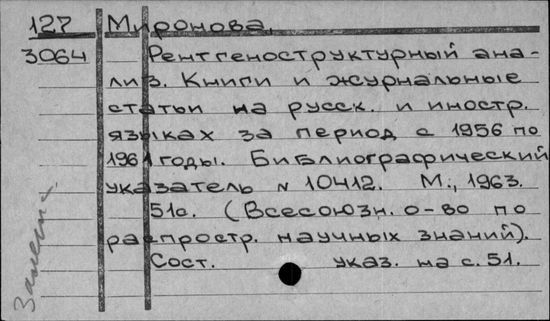 127 Миронова.
3064 Рентгеноструктурный ана-
лиз. Книги и журнальные
статьи на русск. и иностр.
языках за период с 1956 по
1961 годы. Библиографический
указатель N 10412. М., 1963.
51с. (Всесоюзн. о-во по
распростр. научных знаний).
Сост. указ. на с. 51.